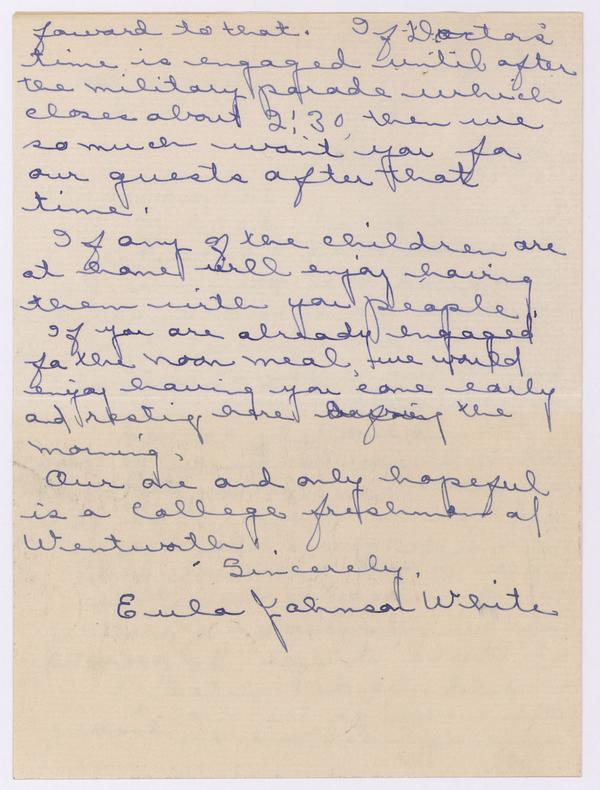 forward to that. If Doctor's
time is engaged until after
the military parade which
closes about 2:30, then we
so much want you for
our guests after that
time.
If any of the children are
at home will enjoy having
them with you people.
If you are already engaged
for the noon meal, we would
enjoy having you come early
and resting here the
morning.
Our one and only hopeful
is a College freshman at
Wentworth.
Sincerely,
Eula Johnson White